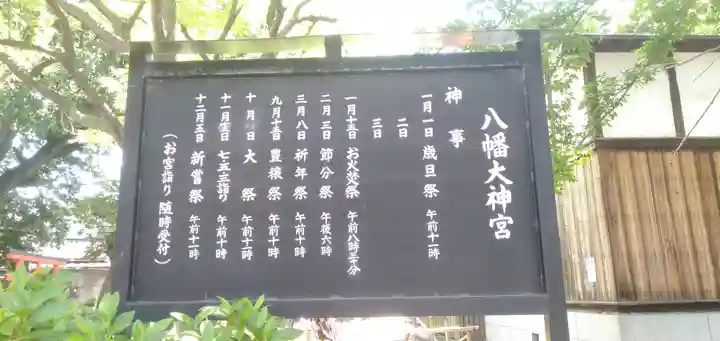 八幡大神宮
神事
一月一日 歳旦祭 午前十一時
二日
三日
一月十五日 お火焚祭 午前八時三十分
二月三日 節分祭 午後六時
三月八日 祈年祭 午前十時
九月十五日 豊穣祭 午前十時
十月 日 大祭 午前十時
十一月 日 七五三詣り 午前十時
十二月五日 新嘗祭 午前十一時
(お宮詣り随時受付)